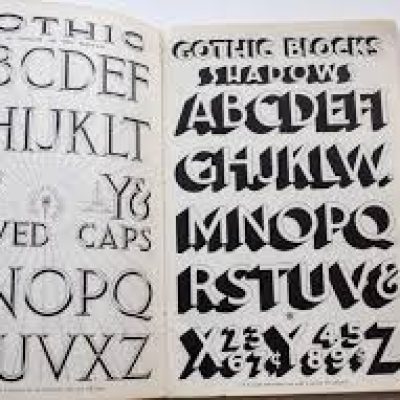 OTHIC
BCDEF
HIJKLT
Y&
VED CAPS
NOPQ
UVXZ
GOTHIC BLOCKS
SHADOWS
ABCDEFI
GHJKLW.
MNOPQ
RSTUV&
X 23 Y 45 Z
67¢ 89$